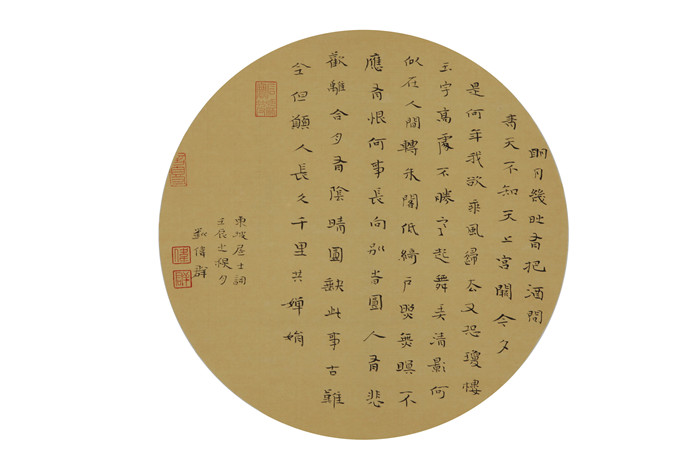 朙月幾時有把酒問
青天不知天上宮闕今夕
是何年我欲乘風歸去又恐瓊樓
玉宇高處不勝寒起舞弄清影何
似在人間轉朱閣低綺戶照無眠不
應有恨何事長向別時圓人有悲
歡離合月有陰晴圓缺此事古難
全但願人長久千里共嬋娟
東坡居士詞
壬辰之秋月
劉偉群